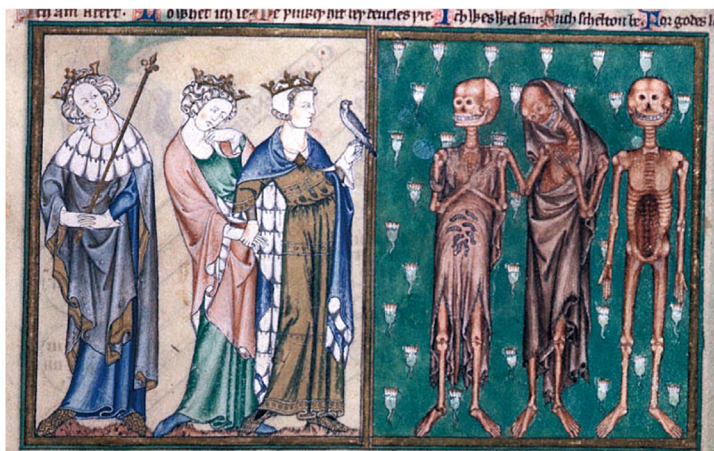 ich am afert. Lo whet ich se. Me þinkeþ hit bey deueles þre. Ich wes wel fair. Such scheltou be. For godes